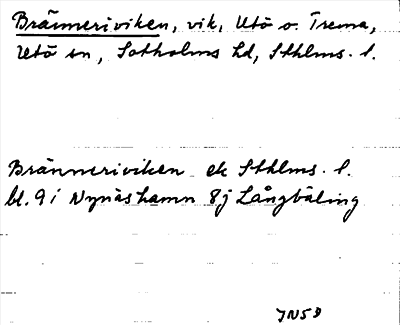 Bränneriviken, vik, Utö o. Trema,
Utö sn, Sotholms hd, Sthlms. l.
Bränneriviken ek Sthlms. l.
bl. 9 i Nynäshamn 8j Långbäling
JN58